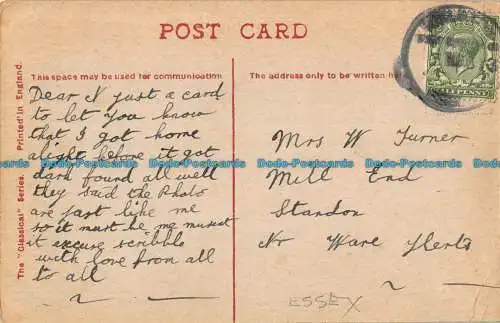 POST CARD
This space may be used for communication
The address only to be written here
The "Classical" Series. Printed in England.
Dear N just a card
to let you know
that I got home
alight before it got
dark found all well
they said the Photo
are fast like me
so it must be me
it excuse scribble
with love from all
to all
HALFPENNY
Mrs W Turner
Mill End
Standon
Nr Ware Herts
ESSEX
Dodo-Postcards Dodo-Postcards Dodo-Postcards Dodo-Postcards